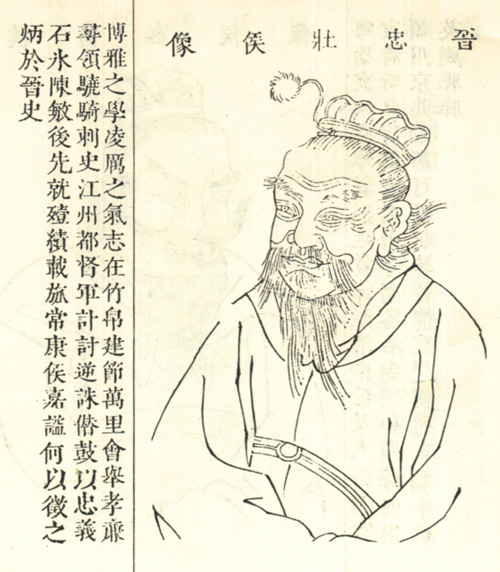 晉忠壯侯像
博雅之學凌厲之氣志在竹帛建節萬里會舉孝廉
尋領驍騎刺史江州都督軍計討逆誅僭鼓以忠義
石氷陳敏後先就殪績載旂常康侯嘉謚何以徵之
炳於晉史